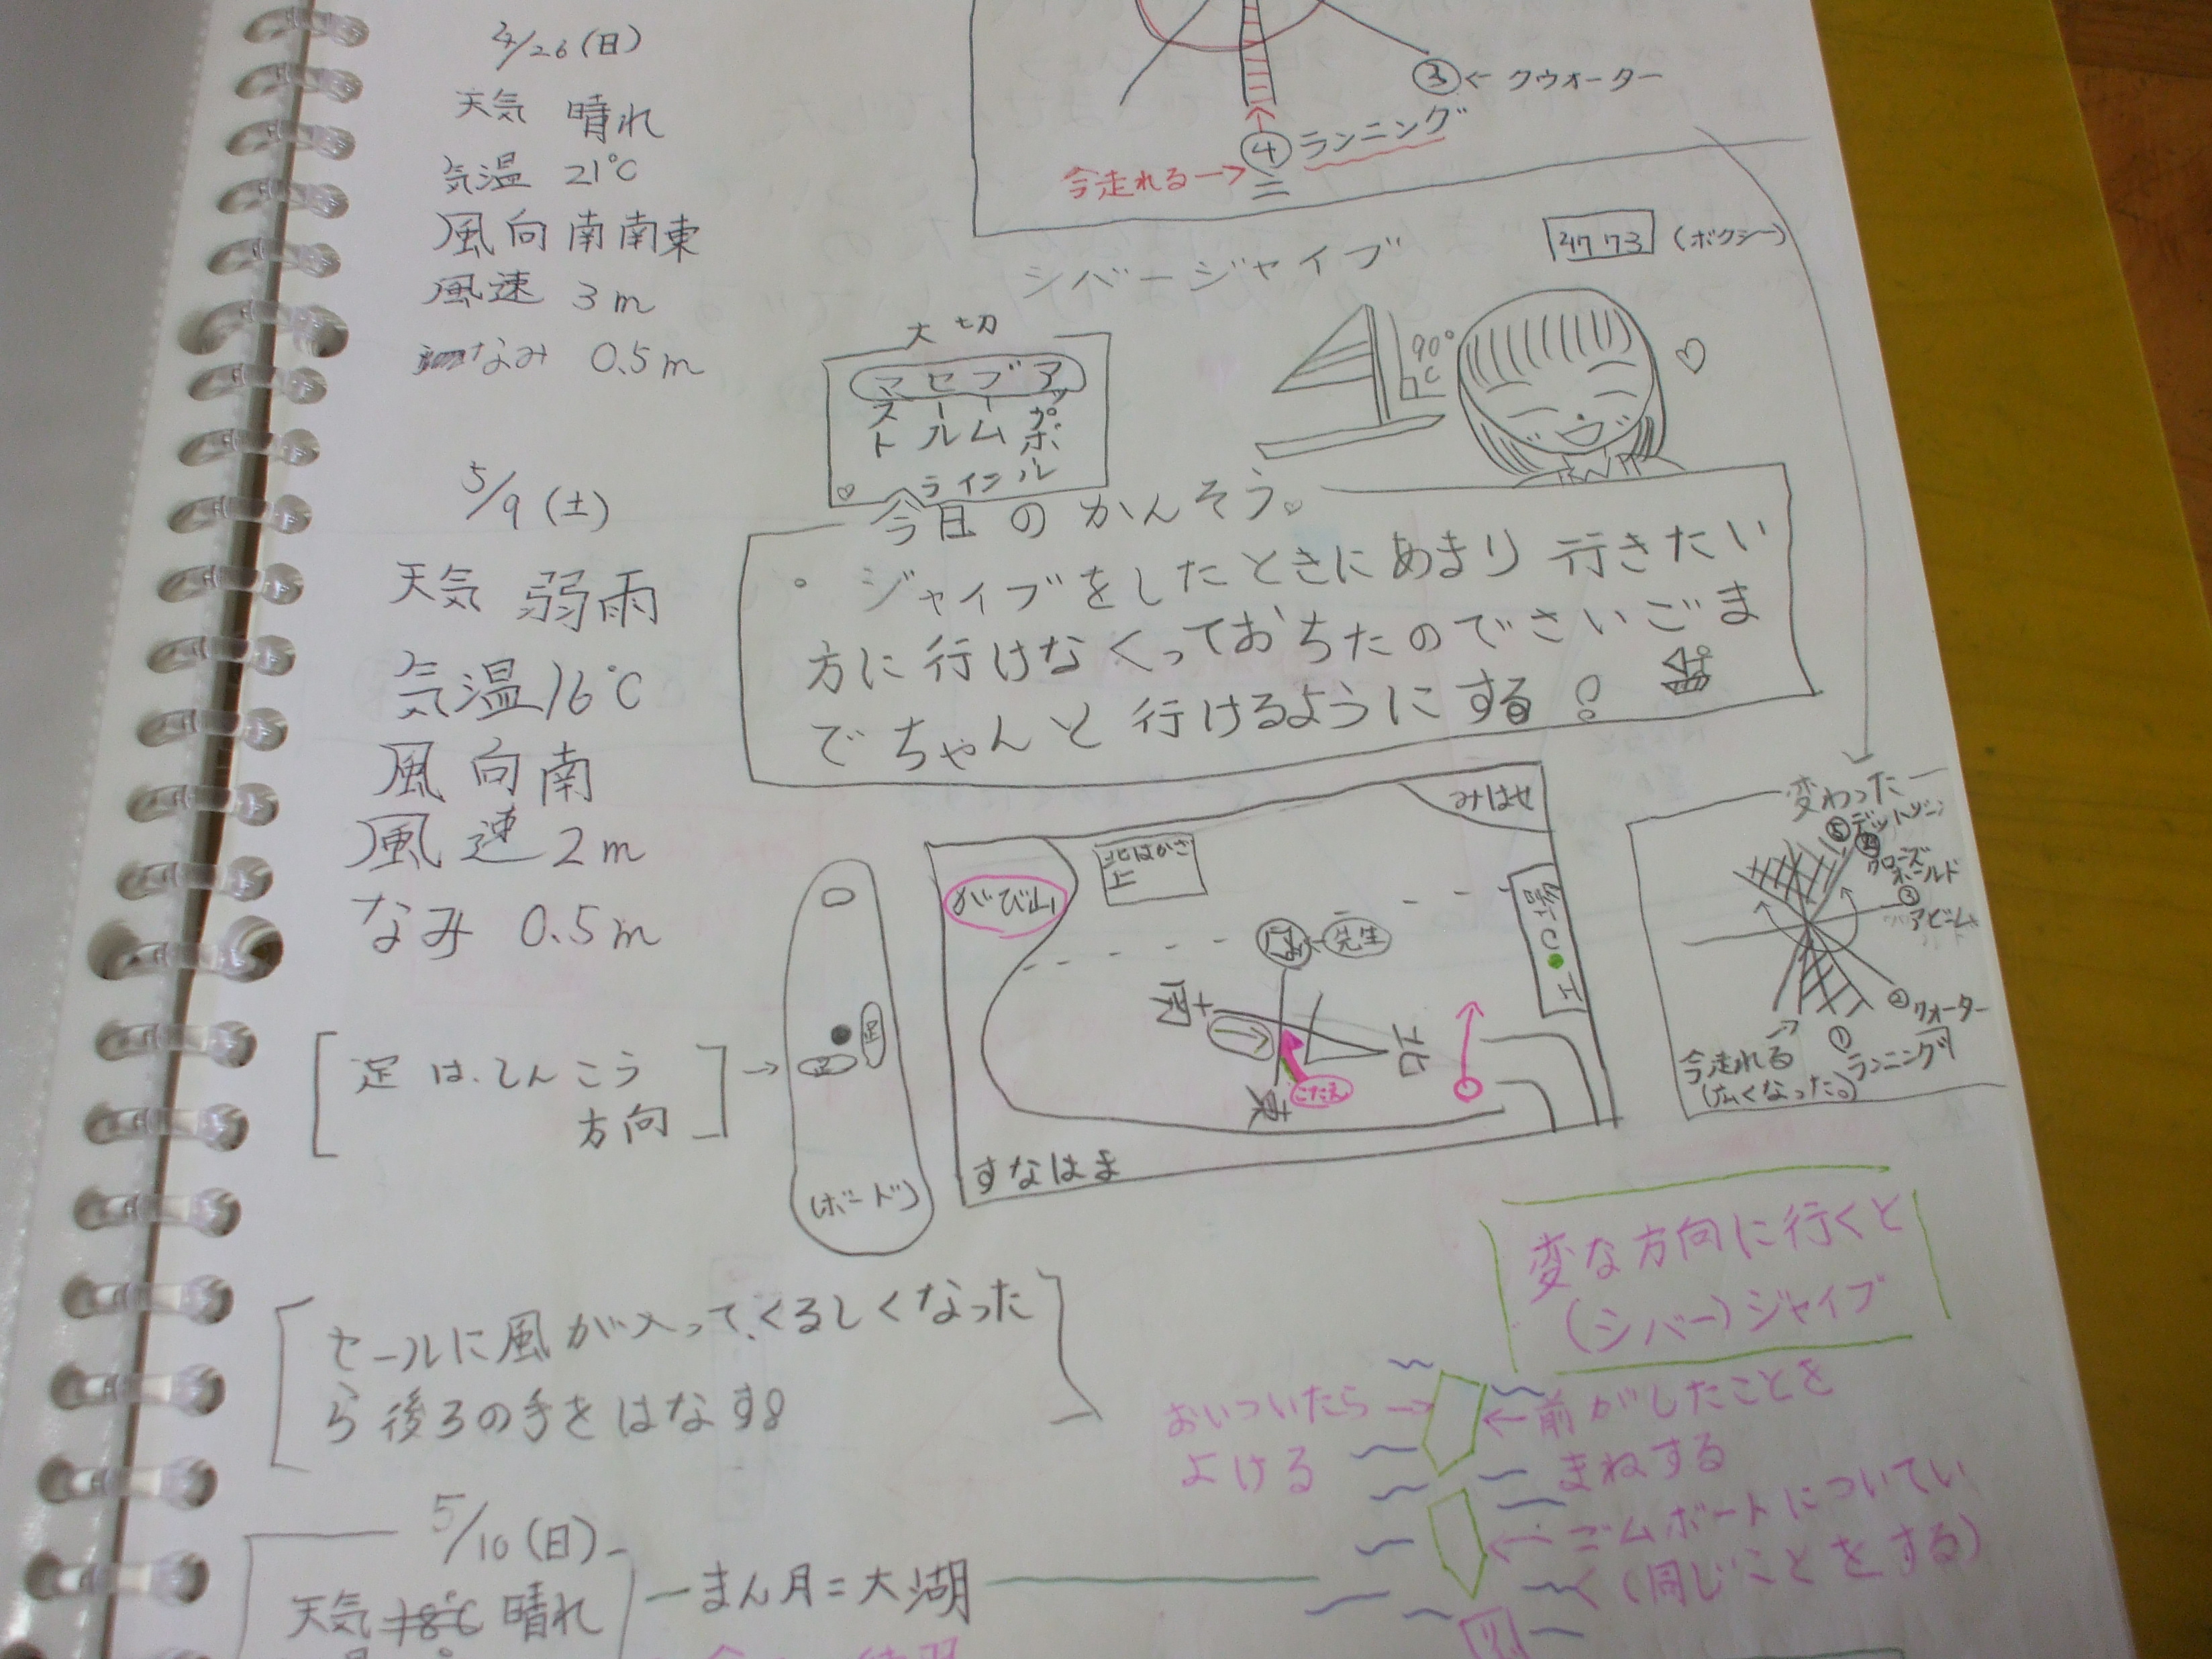 4/26(日)
天気 晴れ
気温 21℃
風向 南南東
風速 3m
なみ 0.5m
③←クウォーター
④ランニング
今走れる→
シバージャイブ
4773 (ボクシー)
大切
マスト
セール
ブーム
アップホール
ライン
90°
今日のかんそう。
。ジャイブをしたときにあまり行きたい
方に行けなくっておちたのでさいごま
でちゃんと行けるようにする
5/9(土)
天気 弱雨
気温16℃
風向南
風速2m
なみ 0.5m
足は、しんこう
方向
足
足
(ボード)
みはせ
がび山
先生
北
東
こたえ
すなはま
変わった
⑤デットゾーン
クローズホールド
③アビーム
②クォーター
①ランニング
今走れる
(広くなった。)
セールに風が入って、くるしくなった
ら後ろの手をはなす
変な方向に行くと
(シバー)ジャイブ
おいついたら→
よける
←前がしたことを
まねする
←ゴムボートについてい
く(同じことをする)
5/10(日)
天気 18℃ 晴れ
まん月=大潮